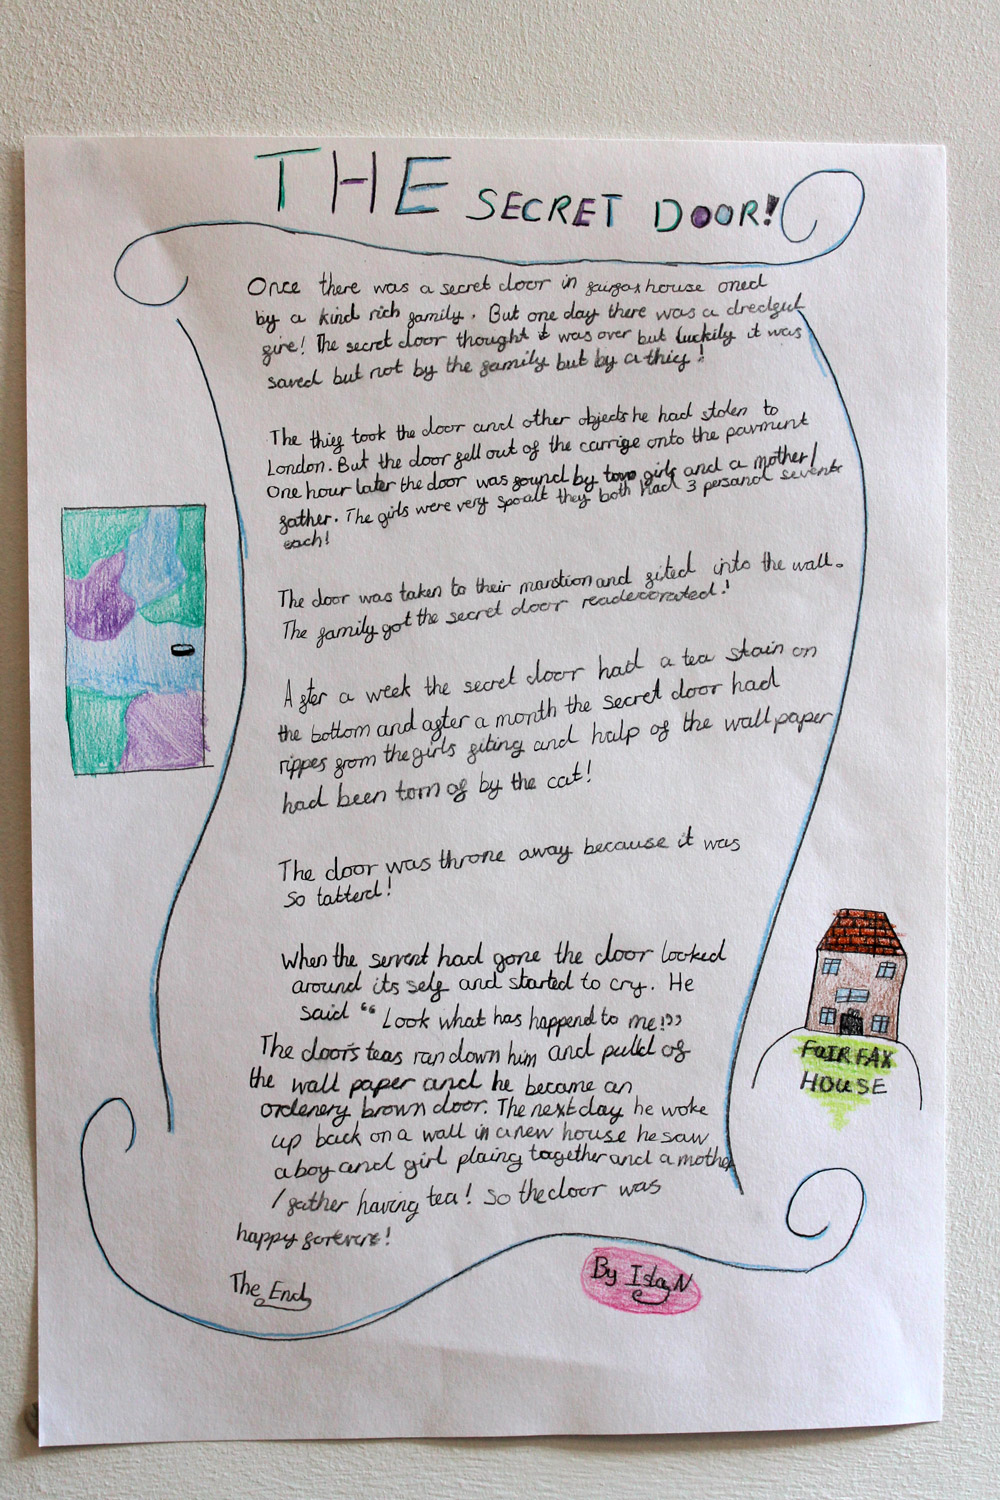 THE SECRET DOOR!
Once there was a secret door in fairfax house oned
by a kind rich family. But one day there was a dredful
fire! The secret door thought it was over but luckily it was
saved but not by the family but by a thief!
The thief took the door and other objects he had stolen to
London. But the door fell out of the carrige onto the pavment
One hour later the door was found by two girls and a mother/
father. The girls were very spoalt they both had 3 persanol sevents
each!
The door was taken to their manstion and fited into the wall.
The family got the secret door readecorated!
After a week the secret door had a tea stain on
the bottom and after a month the secret door had
rippes from the girls fiting and halp of the wall paper
had been torn of by the cat!
The door was throne away because it was
so tatterd!
When the servent had gone the door looked
around its self and started to cry. He
said “Look what has happend to me!”
The door's teas ran down him and pulld of
the wall paper and he became an
ordenery brown door. The next day he woke
up back on a wall in a new house he saw
a boy and girl plaing together and a mother
/father having tea! So the door was
happy forever!
The End
By Isla N
FAIRFAX
HOUSE